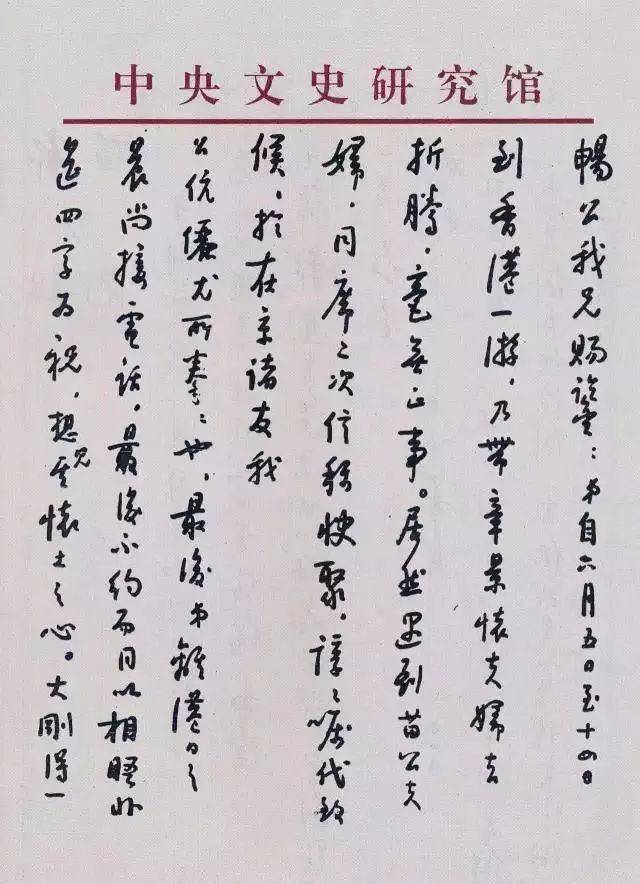 中央文史研究馆
暢公我兄賜鑒：弟自六月五日至十四日
到香港一游，乃帶章景懷夫婦去
折騰，毫無正事。居然遇到苗公夫
婦，同席二次信稱快聚，諄〻嘱代致
候，於在京諸友我
公伉儷尤所拳〻也，最後弟離港日之
晨尚接電話，最後不約而同以相晤北
四字为祝，想见其懷土之心。大剛得一